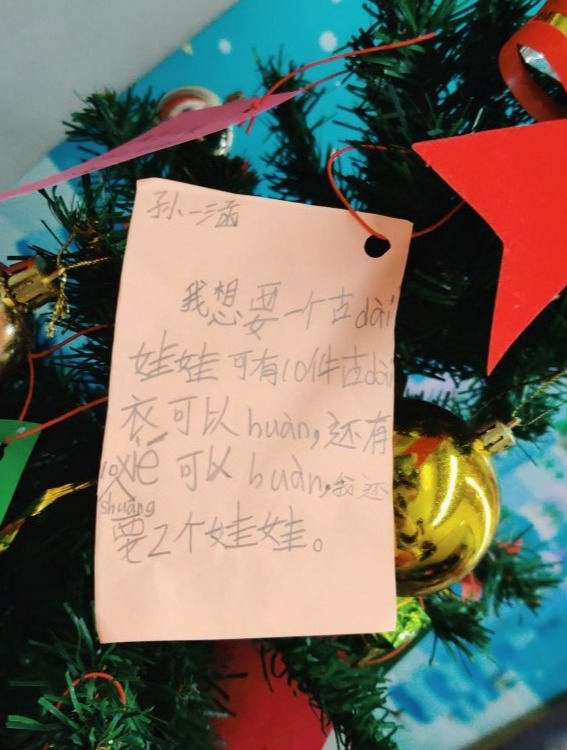 孙一涵
我想要一个古dài
娃娃可有10件古dài
衣可以huàn,还有
10xié可以huàn,我还
shuāng
要2个娃娃。